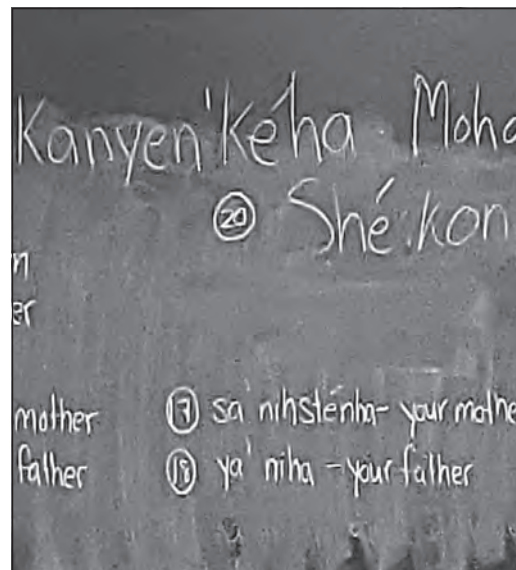 Kanyen'kéha Moha
20 Shé:kon
n
er
mother 17 sa nihsténha- your mothe
father 18 ya' niha - your father